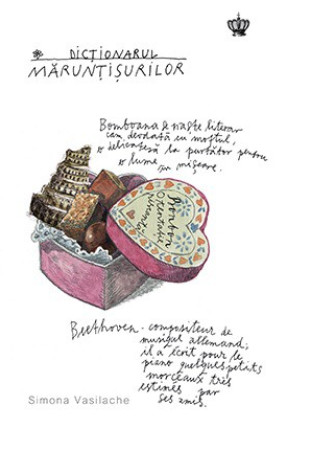 DICȚIONARUL
MĂRUNȚIȘURILOR
Bomboana se naște literar
cam deodată cu moftul,
o delicatesă la purtător pentru
o lume în mișcare.
Bonbon
Beethoven - compositeur de
musique allemand;
il a écrit pour le
piano quelques petits
morceaux très
estimés par
ses amis.
Simona Vasilache